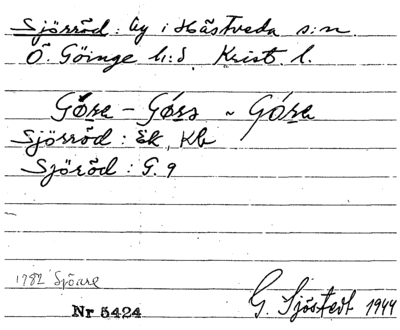 Sjörröd : by i Hästveda s:n.
Ö. Göinge h:d. Krist. l.
Sjörröd : Ek, Kb
Sjöröd : G. 9
1782 Sjöare
Nr 5424
G. Sjöstedt 1944